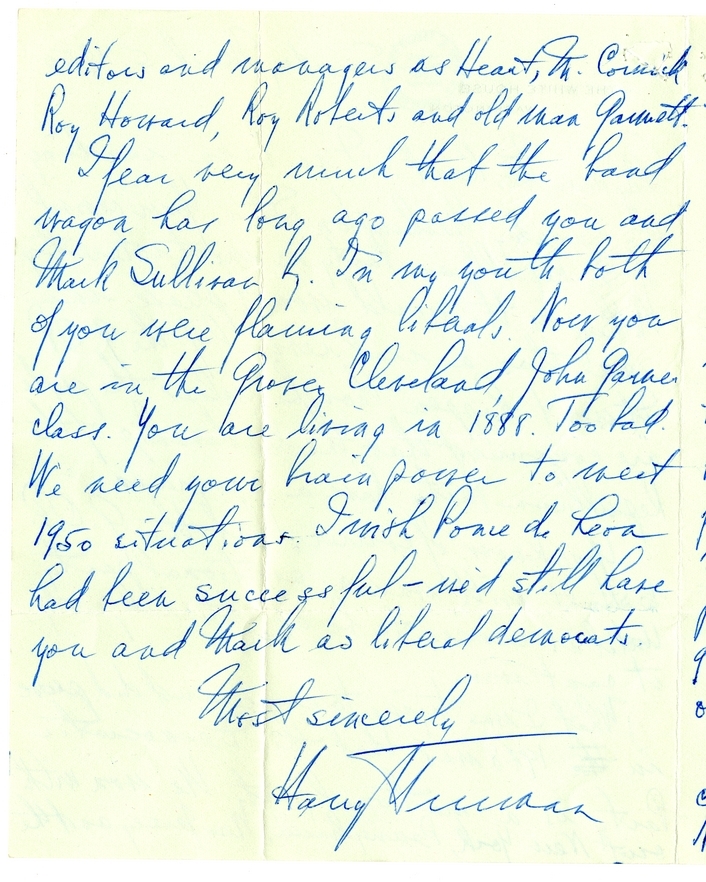 editors and managers as Heart, McCormick
Roy Howard, Roy Roberts and old man Gannett.
I fear very much that the band
wagon has long ago passed you and
Mark Sullivan by. In my youth both
of you were flaming liberals. Now you
are in the Grover Cleveland, John Garner
class. You are living in 1888. Too bad.
We need your brain power to meet
1950 situations. I wish Ponce de Leon
had been successful - we'd still have
you and Mark as liberal democrats.
Most sincerely
Harry Truman